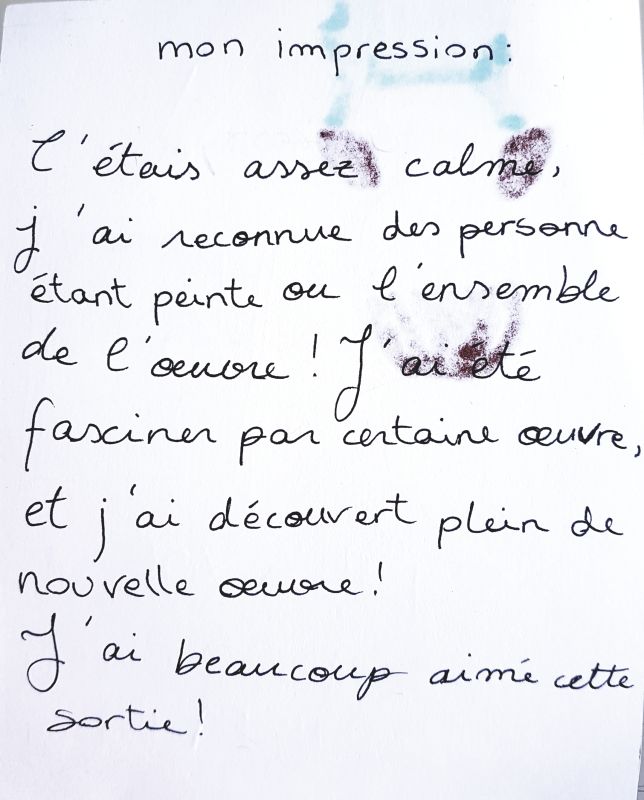 mon impression:
C'étais assez calme,
j'ai reconnue des personne
étant peinte ou l'ensemble
de l'œuvre! J'ai été
fasciner par certaine œuvre,
et j'ai découvert plein de
nouvelle œuvre!
J'ai beaucoup aimé cette
sortie!